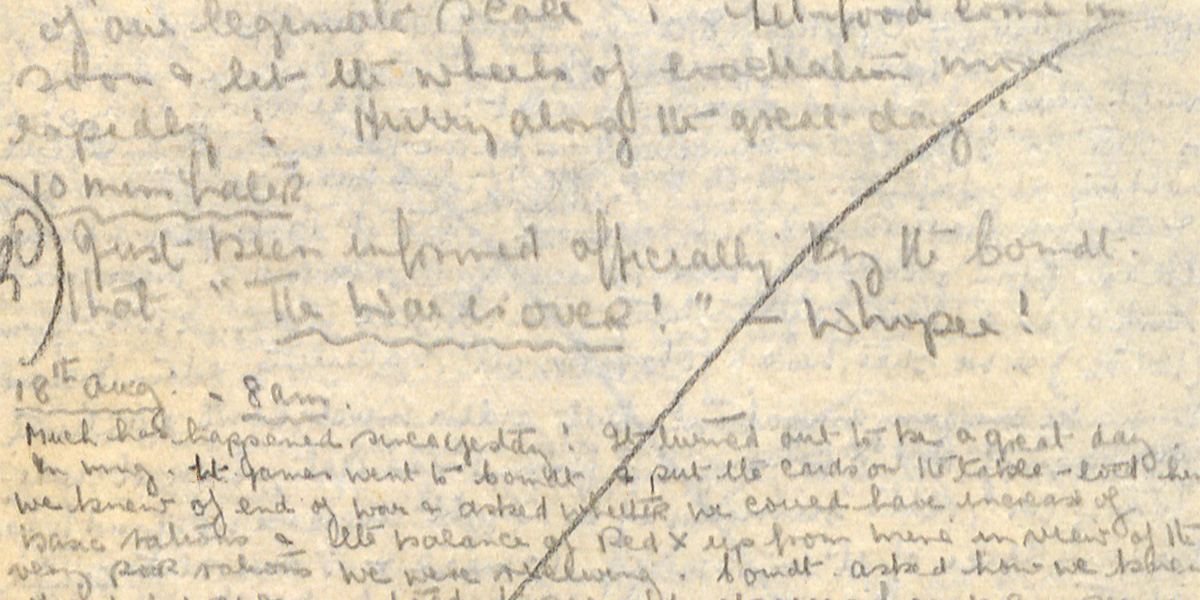 of our legimate scale ! Let food come in
soon & let the wheels of evacuation move
rapidly ! Hurry along the great day !
10 mins later
Just been informed officially by the Comdt.
that " The War is over ! " – Whupee !
18th Aug. - 8 am.
Much has happened since yestdy ! It turned out to be a great day.
In mng. Lt James went to Comdt & put the cards on the table – told him
we knew of end of war & asked whether we could have increase of
basic rations & the balance of Red X up from mine in view of the
very poor rations we were receiving. Comdt asked how we knew